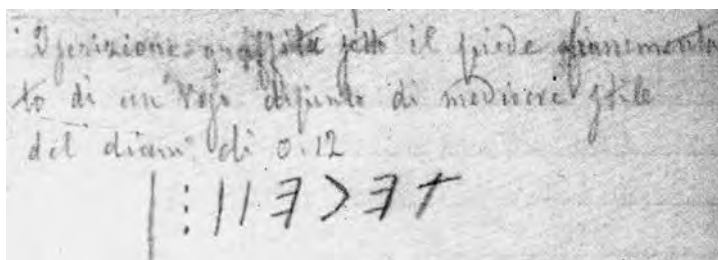 Iscrizione graffita sotto il piede frammenta
to di un vaso dipinto di mediocre stile
del diam. di 0.12
|⋮||Ǝ>Ǝ†